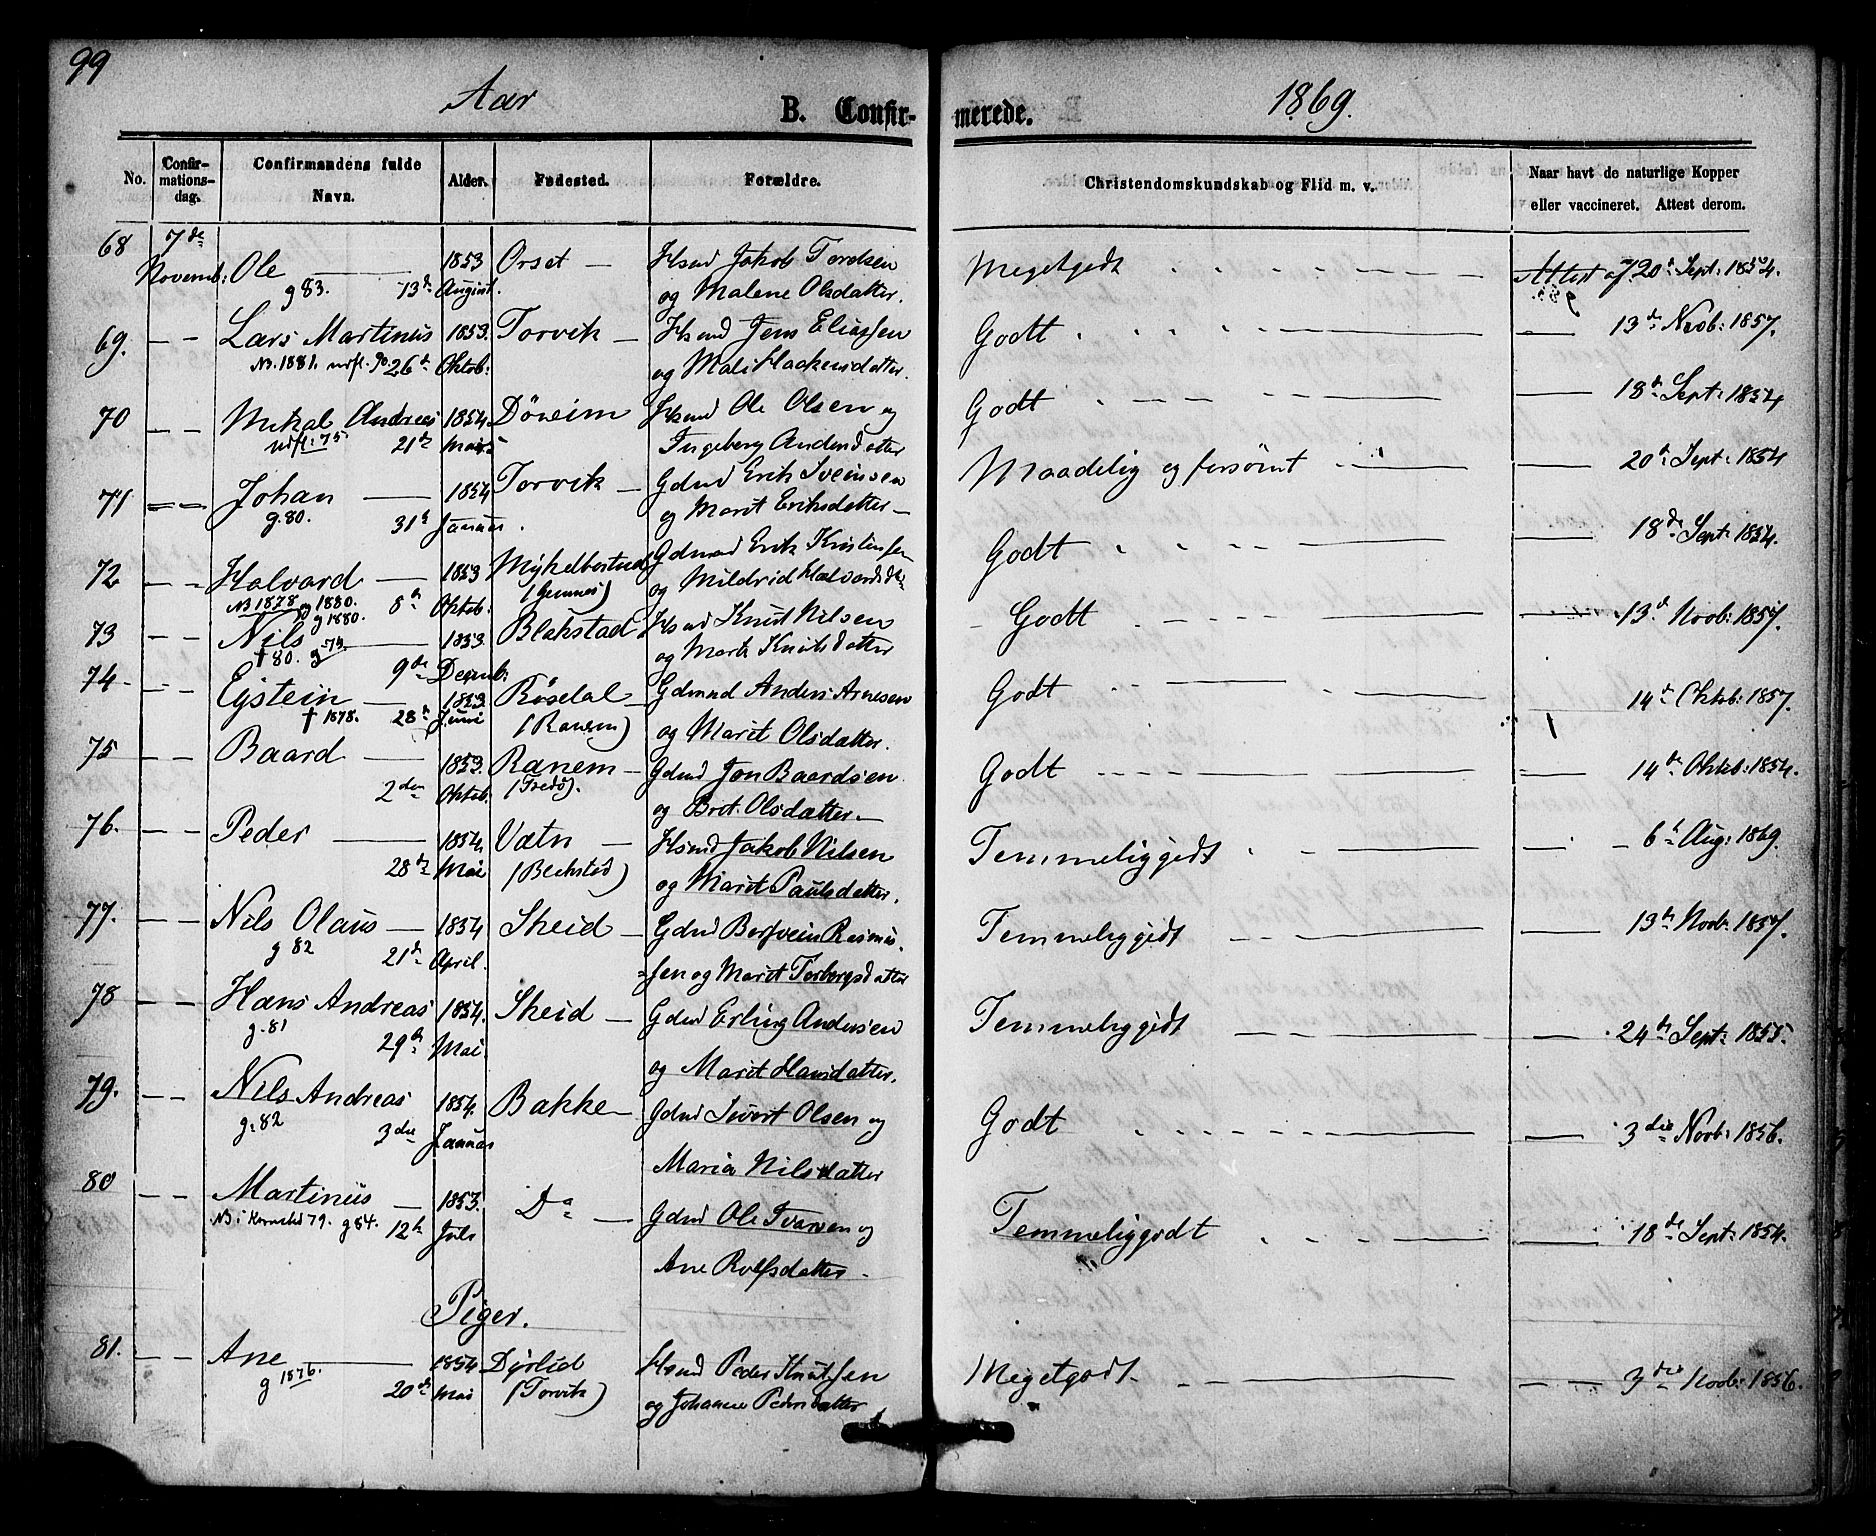 99
Aar
B. Confir-
merede.
1869.
No.
Confir-
mations-
dag.
Confirmandens fulde
Navn.
Alder.
Fødested.
Forældre.
Christendomskundskab og Flid m. v.
Naar havt de naturlige Kopper
eller vaccineret. Attest derom.
68 7de Ole 1853 Orset Hsmd Jakob Tordsen Megetgodt Attest af 20d Sept: 1854.
Novemb: g 83. 13de August. og Malene Olsdatter.
69. Lars Martinus 1853. Torvik Hsmd Jens Eliassen Godt 13de Novb: 1857.
NB. 1881. udfl. 90. 26d Oktob: og Mali Haakensdatter.
70 Mikal Andreas 1854. Döveim Hsmd Ole Olsen og Godt 18d Sept: 1854
udfl: 75 21de Mai Ingeberg Andersdatter
71 Johan 1854 Torvik Gdmd Erik Sveinsen Maadelig og forsömt 20d Sept: 1854
g. 80. 31te Januar. og Marit Eriksdatter
72 Halvard 1853 Mykelbostad Gdmd Erik Kristensen Godt 18de Sept: 1854.
NB 1878 og 1880. 8de Oktob: (Gimnes) og Mildrid Halvardsdtr
g 1880.
73 Nils 1853. Blakstad Hsmd Knut Nilsen Godt 13d Novb: 1857.
† 80. g 73. 9de Decemb: og Marit Knutsdatter
74 Ejstein 1853. Röselal Gdmd Anders Arnesen Godt 14d Oktob: 1857.
† 1878. 28de Juni (Ranem) og Marit Olsdatter.
75 Baard 1853. Ranem Gdmd Jon Baardsen Godt 14de Oktob: 1854.
2den Oktob. (Fredö). og Brit Olsdatter.
76. Peder 1854. Vatn Hsmd Jakob Nilsen Temmeliggodt 6te Aug: 1869.
28de Mai (Blekstad) og Marit Paulsdatter.
77. Nils Olaus 1854 Skeid Gdmd Bersvein Rasmus- Temmeliggodt 13de Novb: 1857.
g 82 21de April. =sen og Marit Torbergsdatter
78 Hans Andreas 1854. Skeid Gdmd Erling Andersen Temmeliggodt 24de Sept: 1855.
g. 81 29de Mai og Marit Hansdatter.
79. Nils Andreas 1854. Bakke Gdmd Sivert Olsen og Godt 3die Novb: 1856.
g. 82 3die Januar Maria Nilsdatter
80 Martinus 1853. Do Gdmd Ole Ivarsen og Temmeliggodt 18de Sept: 1854.
NB i Kornstad 79. g 84. 12te Juli Ane Rolfsdatter
Piger.
81. Ane 1854 Dyrlid Hsmd Peder Knutsen Megetgodt 3die Novb: 1856.
g 1876. 20de Mai (Torvik) og Johanne Pedersdatter